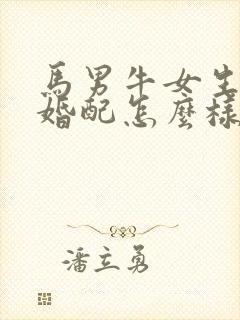 馬男牛女生
婚配怎麼樣
潘立勇